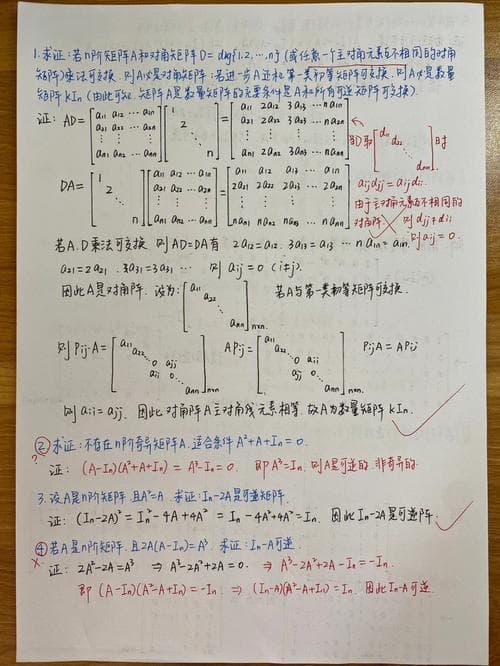 1. 求证: 若n阶矩阵A和对角矩阵D= dag{1,2,…n} (或任意一个主对角元素互不相同的对角
矩阵)乘法可交换. 则A必是对角矩阵; 若进一步A还和第一类初等矩阵可交换. 则A必是数量
矩阵kIn (由此可知. 矩阵A是数量矩阵的充要条件是A和所有可逆矩阵可交换).
证: AD= [a11 a12 … a1n
a21 a22 … a2n
⋮ ⋮ ⋮
an1 an2 … ann] [1
2
⋱
n] = [a11 2a12 3a13 … na1n
a21 2a22 3a23 … na2n
⋮ ⋮ ⋮ ⋮
an1 2an2 3an3 … nann]
若D取 [d11
d22
⋱
dnn] 时
aijdjj = aijdii
由于主对角元素互不相同的
对角阵. 则djj≠dii
则aij=0.
DA= [1
2
⋱
n] [a11 a12 … a1n
a21 a22 … a2n
⋮ ⋮ ⋮
an1 an2 … ann] = [a11 a12 a13 … a1n
2a21 2a22 2a23 … 2a2n
⋮ ⋮ ⋮ ⋮
nan1 nan2 nan3 … nann]
若A、D乘法可交换 则AD=DA有 2a12=a12. 3a13=a13 … na1n=a1n.
a21=2a21. 3a31=3a31 … 则 aij=0 (i≠j).
因此A是对角阵. 设为: [a11
a22
⋱
ann]n×n. 若A与第一类初等矩阵可交换.
则 Pij·A= [a11
a22
⋱
0 ajj
aii 0
⋱
ann]n×n APij= [a11
a22
⋱
0 aii
ajj 0
⋱
ann]n×n. PijA=APij
则 aii=ajj. 因此对角阵A主对角线元素相等. 故A为数量矩阵kIn.
? ② 求证: 不存在n阶奇异矩阵A. 适合条件A²+A+In=0.
证: (A-In)(A²+A+In) = A³-In=0. 即A³=In. 则A是可逆的. 非奇异的.
3. 设A是n阶矩阵. 且A²=A. 求证: In-2A是可逆矩阵.
证: (In-2A)² = In²-4A+4A² = In-4A²+4A²=In. 因此In-2A是可逆阵.
④ 若A是n阶矩阵. 且2A(A-In)=A³ 求证: In-A可逆.
证: 2A²-2A=A³ ⇒ A³-2A²+2A=0. ⇒ A³-2A²+2A-In=-In.
即 (A-In)(A²-A+In)=-In ⇒ (In-A)(A²-A+In)=In. 因此In-A可逆.